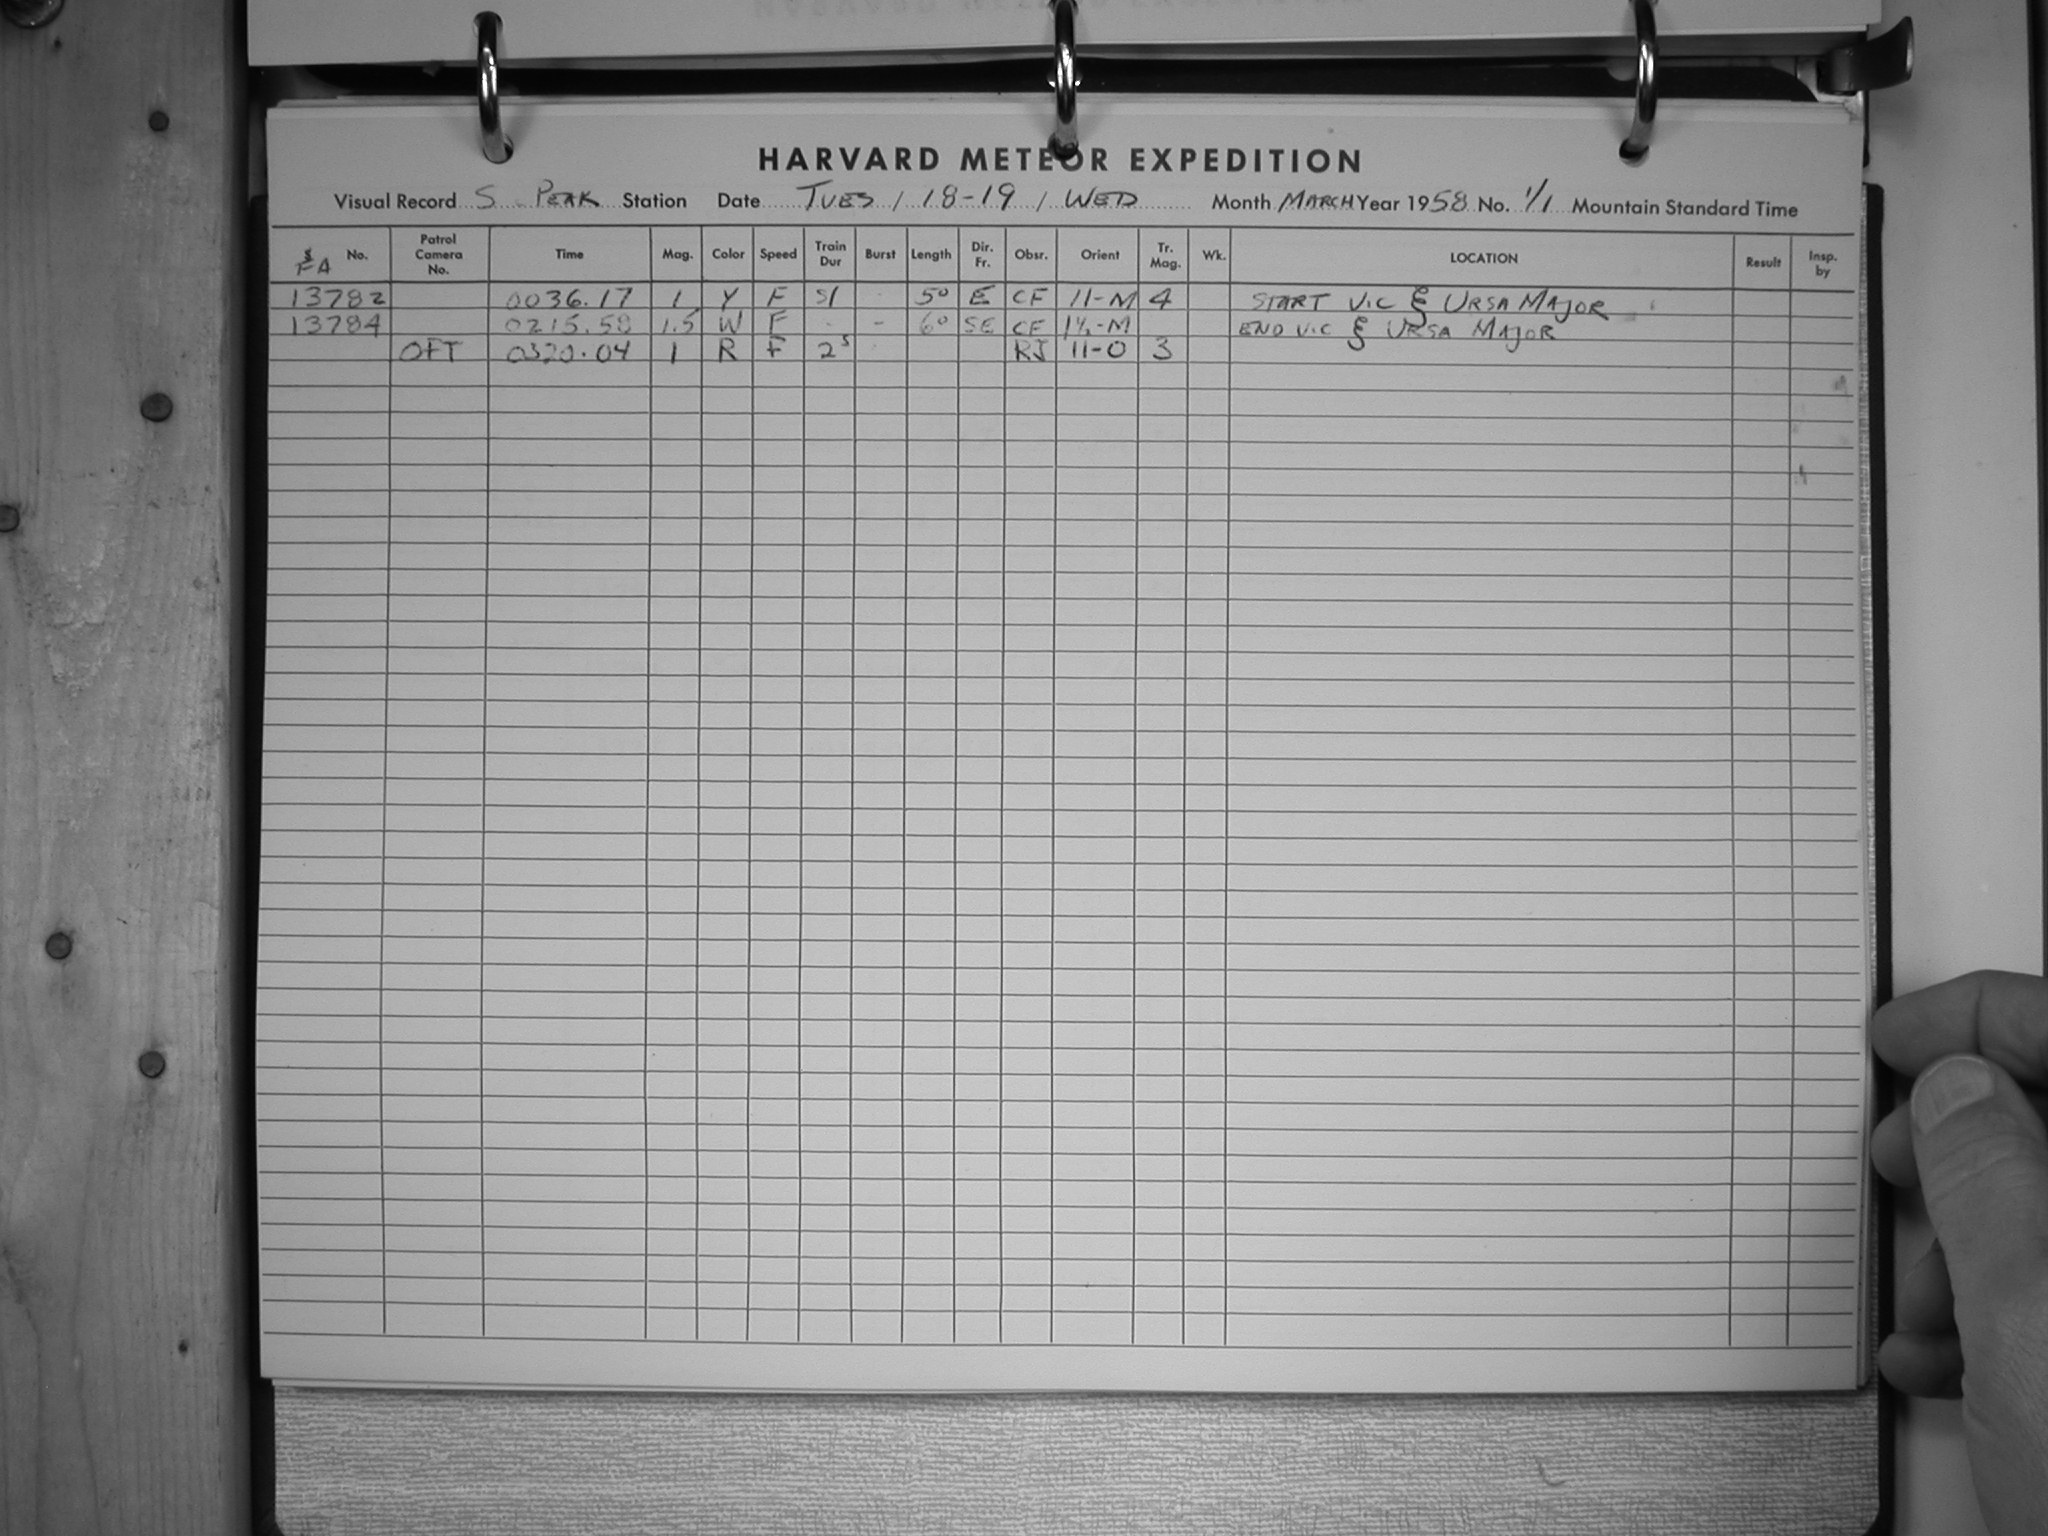 HARVARD METEOR EXPEDITION
Visual Record S. PEAK Station Date TUES / 18-19 / WED Month MARCH Year 1958 No. 1/1 Mountain Standard Time
No. Patrol Camera No. Time Mag. Color Speed Train Dur Burst Length Dir. Fr. Obsr. Orient Tr. Mag. Wk. LOCATION Result Insp. by
13782 0036.17 1 Y F S1 - 5° E CF 11-M 4 START VIC ξ URSA MAJOR
13784 0215.58 1.5 W F - - 6° SE CF 1½-M END VIC ξ URSA MAJOR
OFT 0320.04 1 R F 2s RJ 11-O 3